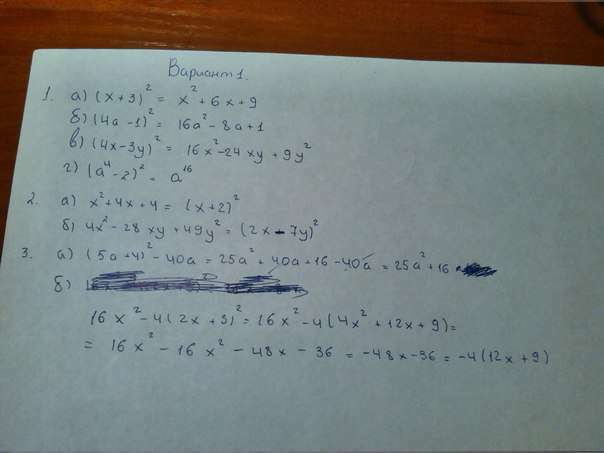 Вариант 1.
1. а) (x+3)² = x² + 6x + 9
б) (4a - 1)² = 16a² - 8a + 1
в) (4x - 3y)² = 16x² - 24xy + 9y²
г) (a⁴ - 2)² = a¹⁶
2. а) x² + 4x + 4 = (x + 2)²
б) 4x² - 28xy + 49y² = (2x - 7y)²
3. а) (5a + 4)² - 40a = 25a² + 40a + 16 - 40a = 25a² + 16
б)
16x² - 4(2x + 3)² = 16x² - 4(4x² + 12x + 9) =
= 16x² - 16x² - 48x - 36 = -48x - 36 = -4(12x + 9)